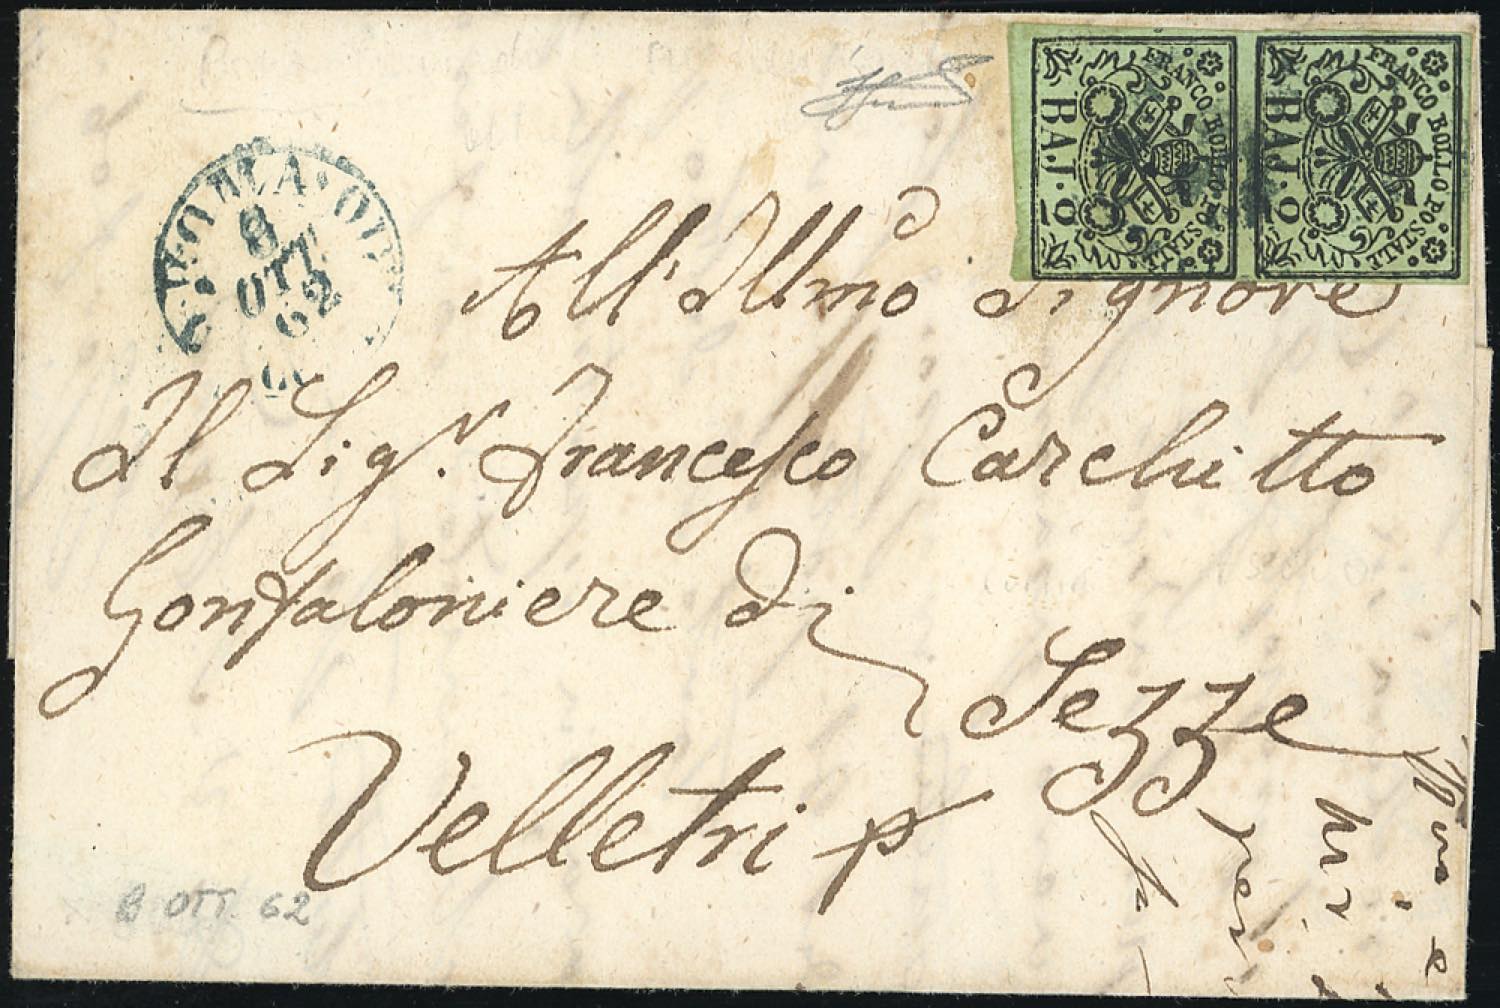 FRANCO BOLLO POSTALE
BAJ. 2
FRANCO BOLLO POSTALE
BAJ. 2
ROMA
8
OTT.
62
All'Illmo Signore
Il Sigr. Francesco Carchitto
Gonfaloniere di
Sezze
Velletri p
8 OTT. 62